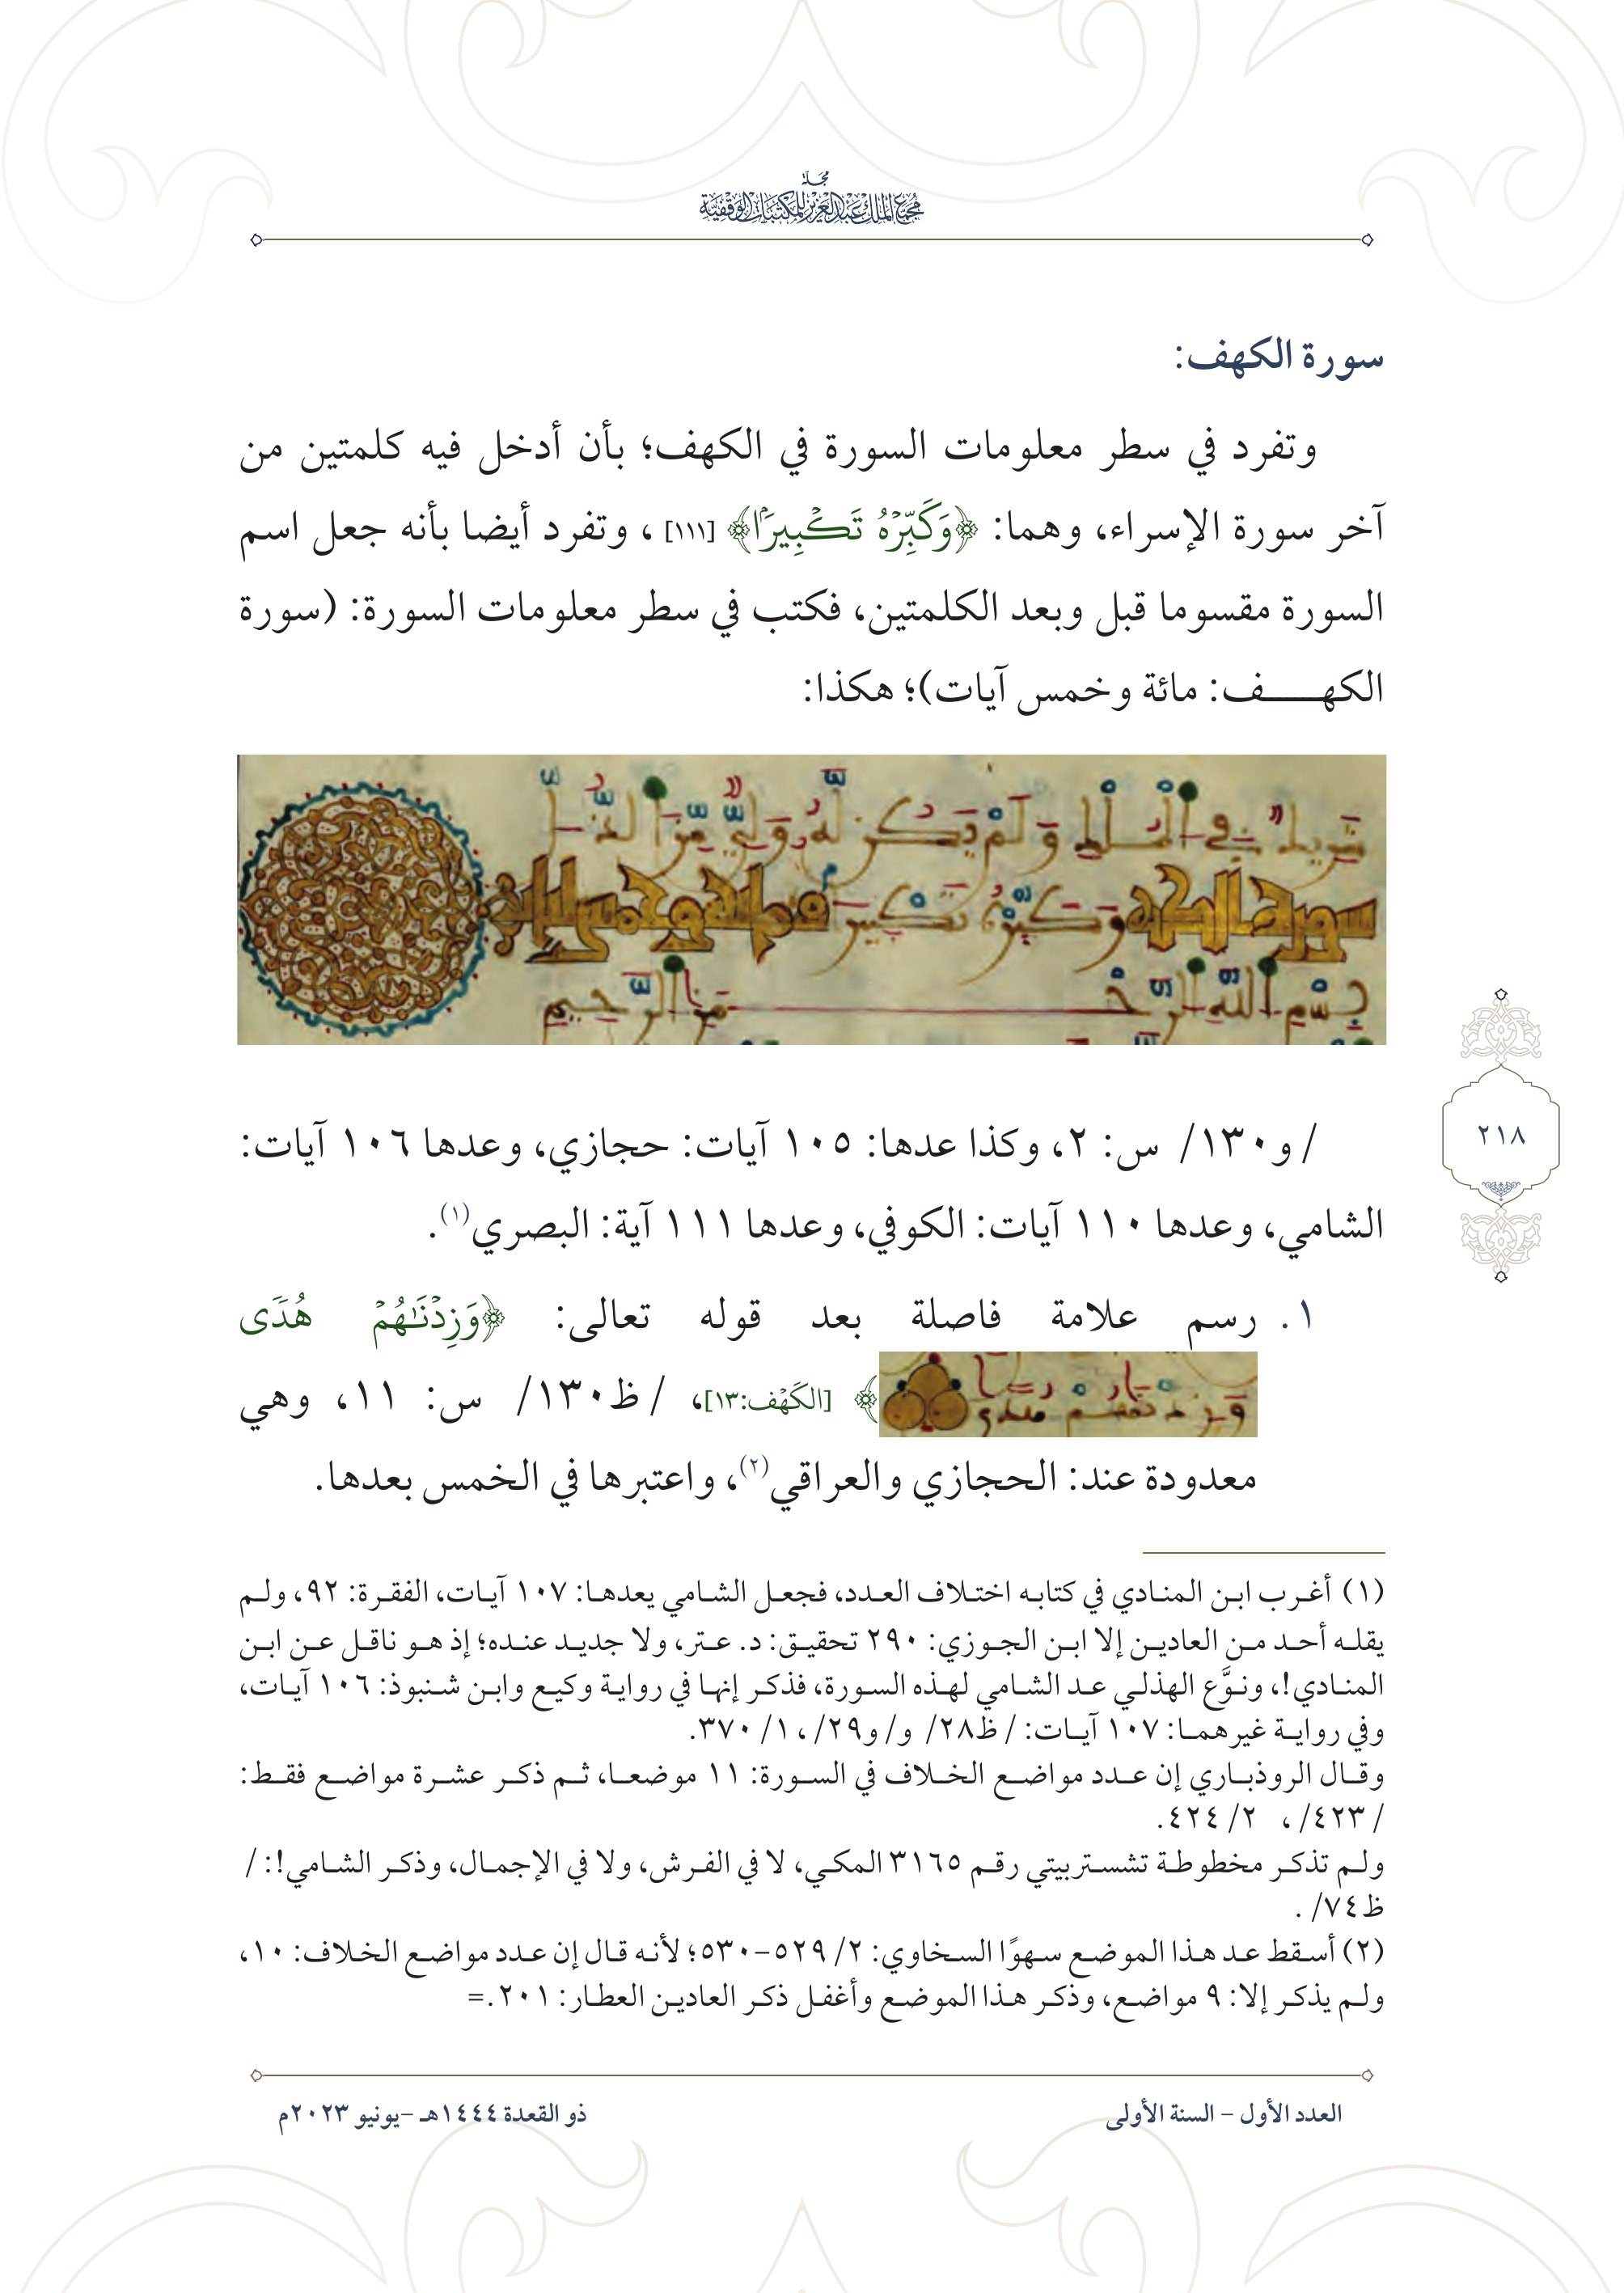 مجلة
مجمع الملك عبدالعزيز للمكتبات الوقفية
سورة الكهف:
وتفرد في سطر معلومات السورة في الكهف؛ بأن أدخل فيه كلمتين من
آخر سورة الإسراء، وهما: ﴿وَكَبِّرۡهُ تَكۡبِيرَۢا﴾ [١١١] ، وتفرد أيضا بأنه جعل اسم
السورة مقسوما قبل وبعد الكلمتين، فكتب في سطر معلومات السورة: (سورة
الكهــــــف: مائة وخمس آيات)؛ هكذا:
شريك في الملك ولم يكن له ولي من الذل
سورة الكهف وكبره تكبيرا
بسم الله الرحمن الرحيم
٢١٨
/و١٣٠/ س: ٢، وكذا عدها: ١٠٥ آيات: حجازي، وعدها ١٠٦ آيات:
الشامي، وعدها ١١٠ آيات: الكوفي، وعدها ١١١ آية: البصري(١).
١. رسم علامة فاصلة بعد قوله تعالى: ﴿وَزِدۡنَٰهُمۡ هُدٗى
وزدنهم هدى﴾ [الكَهۡف:١٣]، /ظ١٣٠/ س: ١١، وهي
معدودة عند: الحجازي والعراقي(٢)، واعتبرها في الخمس بعدها.
(١) أغرب ابن المنادي في كتابه اختلاف العدد، فجعل الشامي يعدها: ١٠٧ آيات، الفقرة: ٩٢، ولم
يقله أحد من العادين إلا ابن الجوزي: ٢٩٠ تحقيق: د. عتر، ولا جديد عنده؛ إذ هو ناقل عن ابن
المنادي!، ونوَّع الهذلي عد الشامي لهذه السورة، فذكر إنها في رواية وكيع وابن شنبوذ: ١٠٦ آيات،
وفي رواية غيرهما: ١٠٧ آيات: /ظ٢٨/ و/و٢٩/، ١/ ٣٧٠.
وقال الروذباري إن عدد مواضع الخلاف في السورة: ١١ موضعا، ثم ذكر عشرة مواضع فقط:
/٤٢٣/، ٢/ ٤٢٤.
ولم تذكر مخطوطة تشستربيتي رقم ٣١٦٥ المكي، لا في الفرش، ولا في الإجمال، وذكر الشامي!: /
ظ٧٤/ .
(٢) أسقط عد هذا الموضع سهوًا السخاوي: ٢/ ٥٢٩-٥٣٠؛ لأنه قال إن عدد مواضع الخلاف: ١٠،
ولم يذكر إلا: ٩ مواضع، وذكر هذا الموضع وأغفل ذكر العادين العطار: ٢٠١.=
العدد الأول – السنة الأولى
ذو القعدة ١٤٤٤هـ –يونيو ٢٠٢٣م